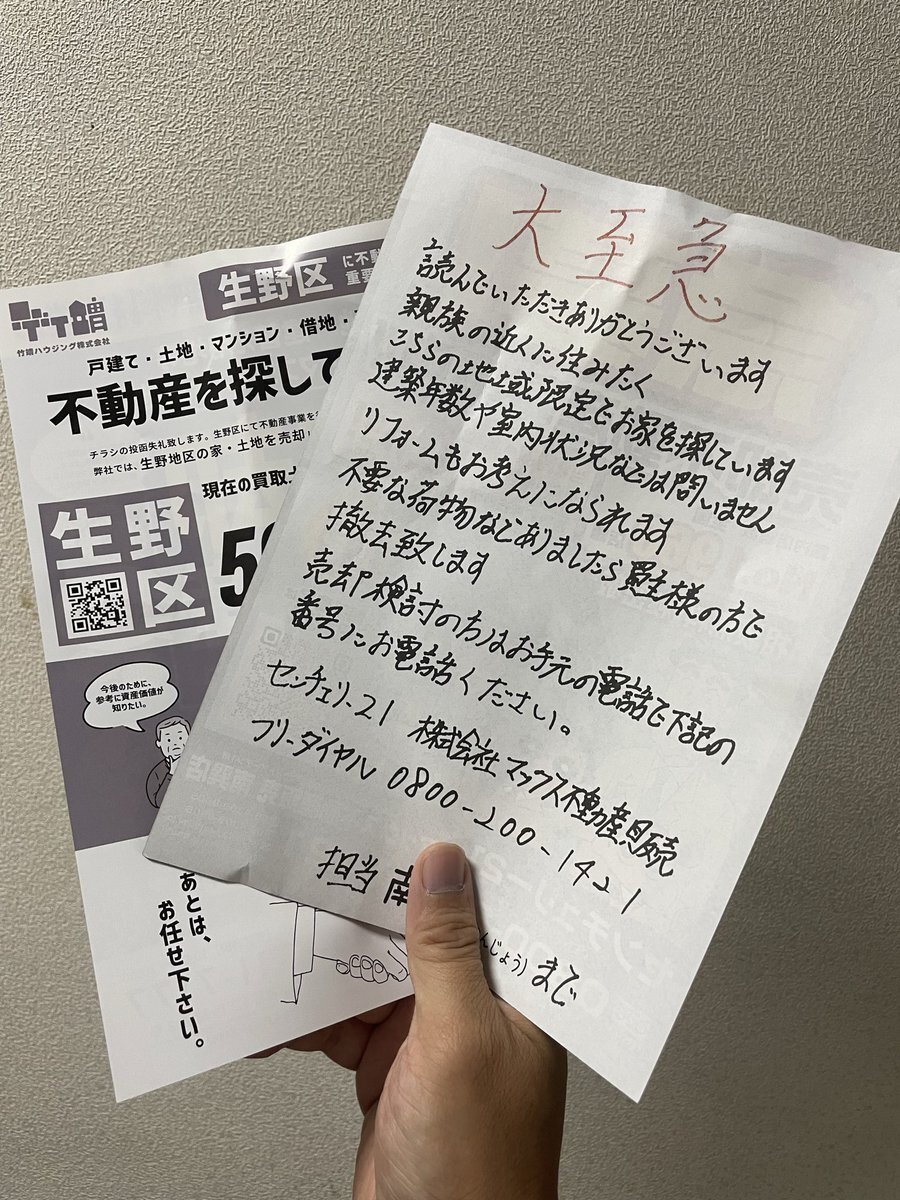 大至急
読んでいただきありがとうございます
親族の近くに住みたく
こちらの地域限定でお家を探しています
建築年数や室内状況などは問いません
リフォームもお考えになられます
不要な荷物などありましたら買主様の方で
撤去致します
売却検討の方はお手元の電話で下記の
番号にお電話ください。
センチュリー21 株式会社マックス不動産販売
フリーダイヤル 0800-200-1421
担当 南
んじょう) まで
竹増
竹増ハウジング株式会社
生野区に不動
重要
戸建て・土地・マンション・借地・
不動産を探して
チラシの投函失礼致します。生野区にて不動産事業を
弊社では、生野地区の家・土地を売却
現在の買取
生野
区
5
今後のために、
参考に資産価値が
知りたい。
あとは、
お任せ下さい。